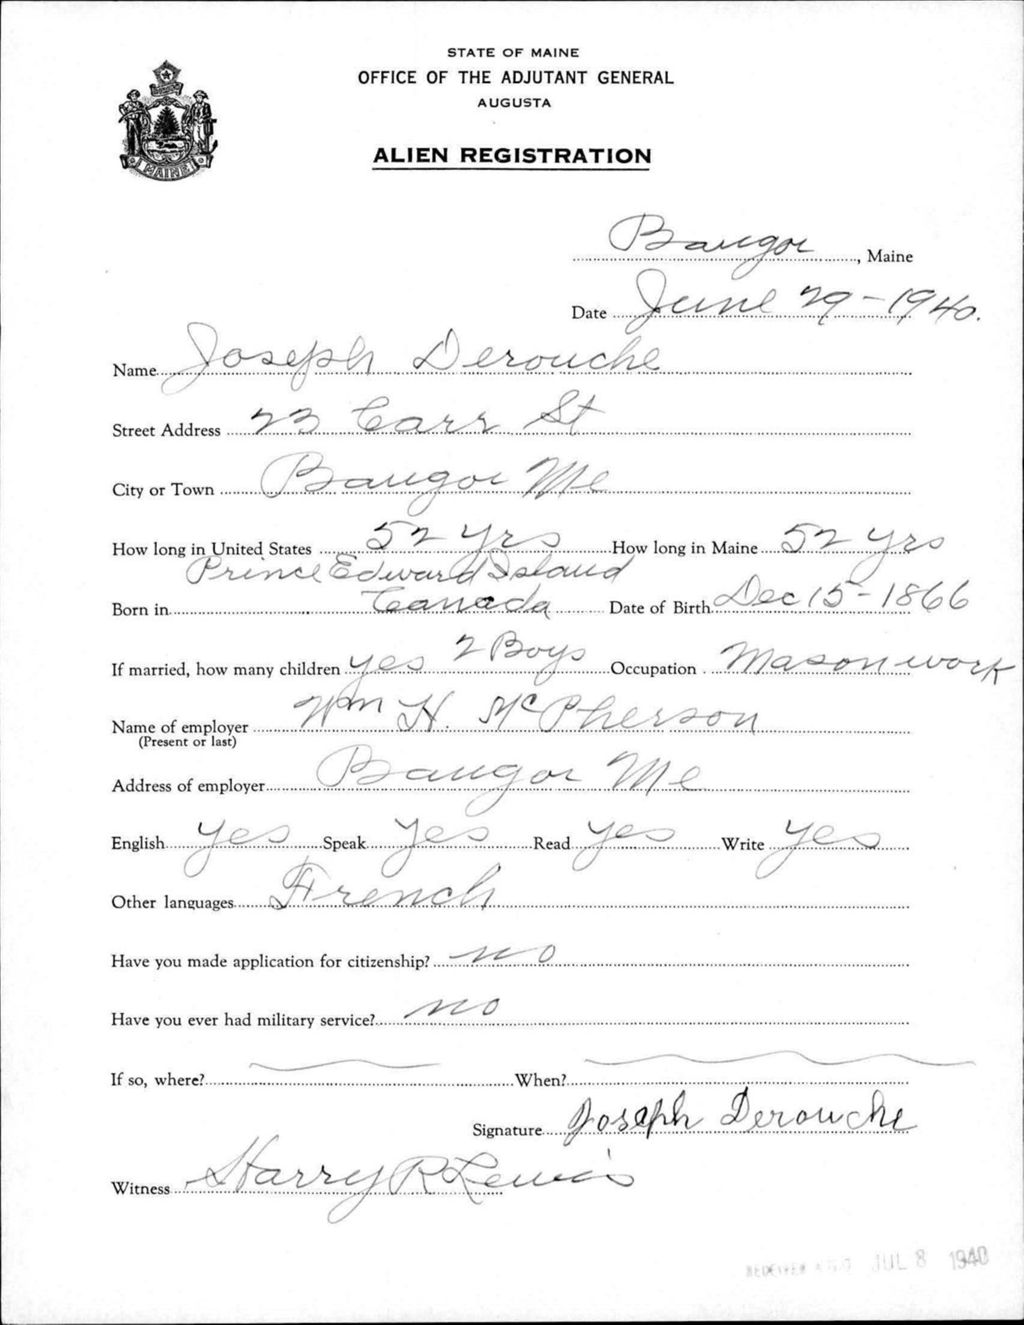 STATE OF MAINE
OFFICE OF THE ADJUTANT GENERAL
AUGUSTA
ALIEN REGISTRATION
MAINE
Bangor, Maine
Date June 29-1940.
Name Joseph Derouche
Street Address 23 Carr St
City or Town Bangor Me
How long in United States 52 yrs How long in Maine 52 yrs
Prince Edward Island
Born in Canada Date of Birth Dec 15-1866
If married, how many children yes 2 Boys Occupation Mason work
Name of employer Wm H. McPherson
(Present or last)
Address of employer Bangor Me
English yes Speak yes Read yes Write yes
Other languages French
Have you made application for citizenship? no
Have you ever had military service? no
If so, where? When?
Signature Joseph Derouche
Witness Harry R Lewis
JUL 8 1940